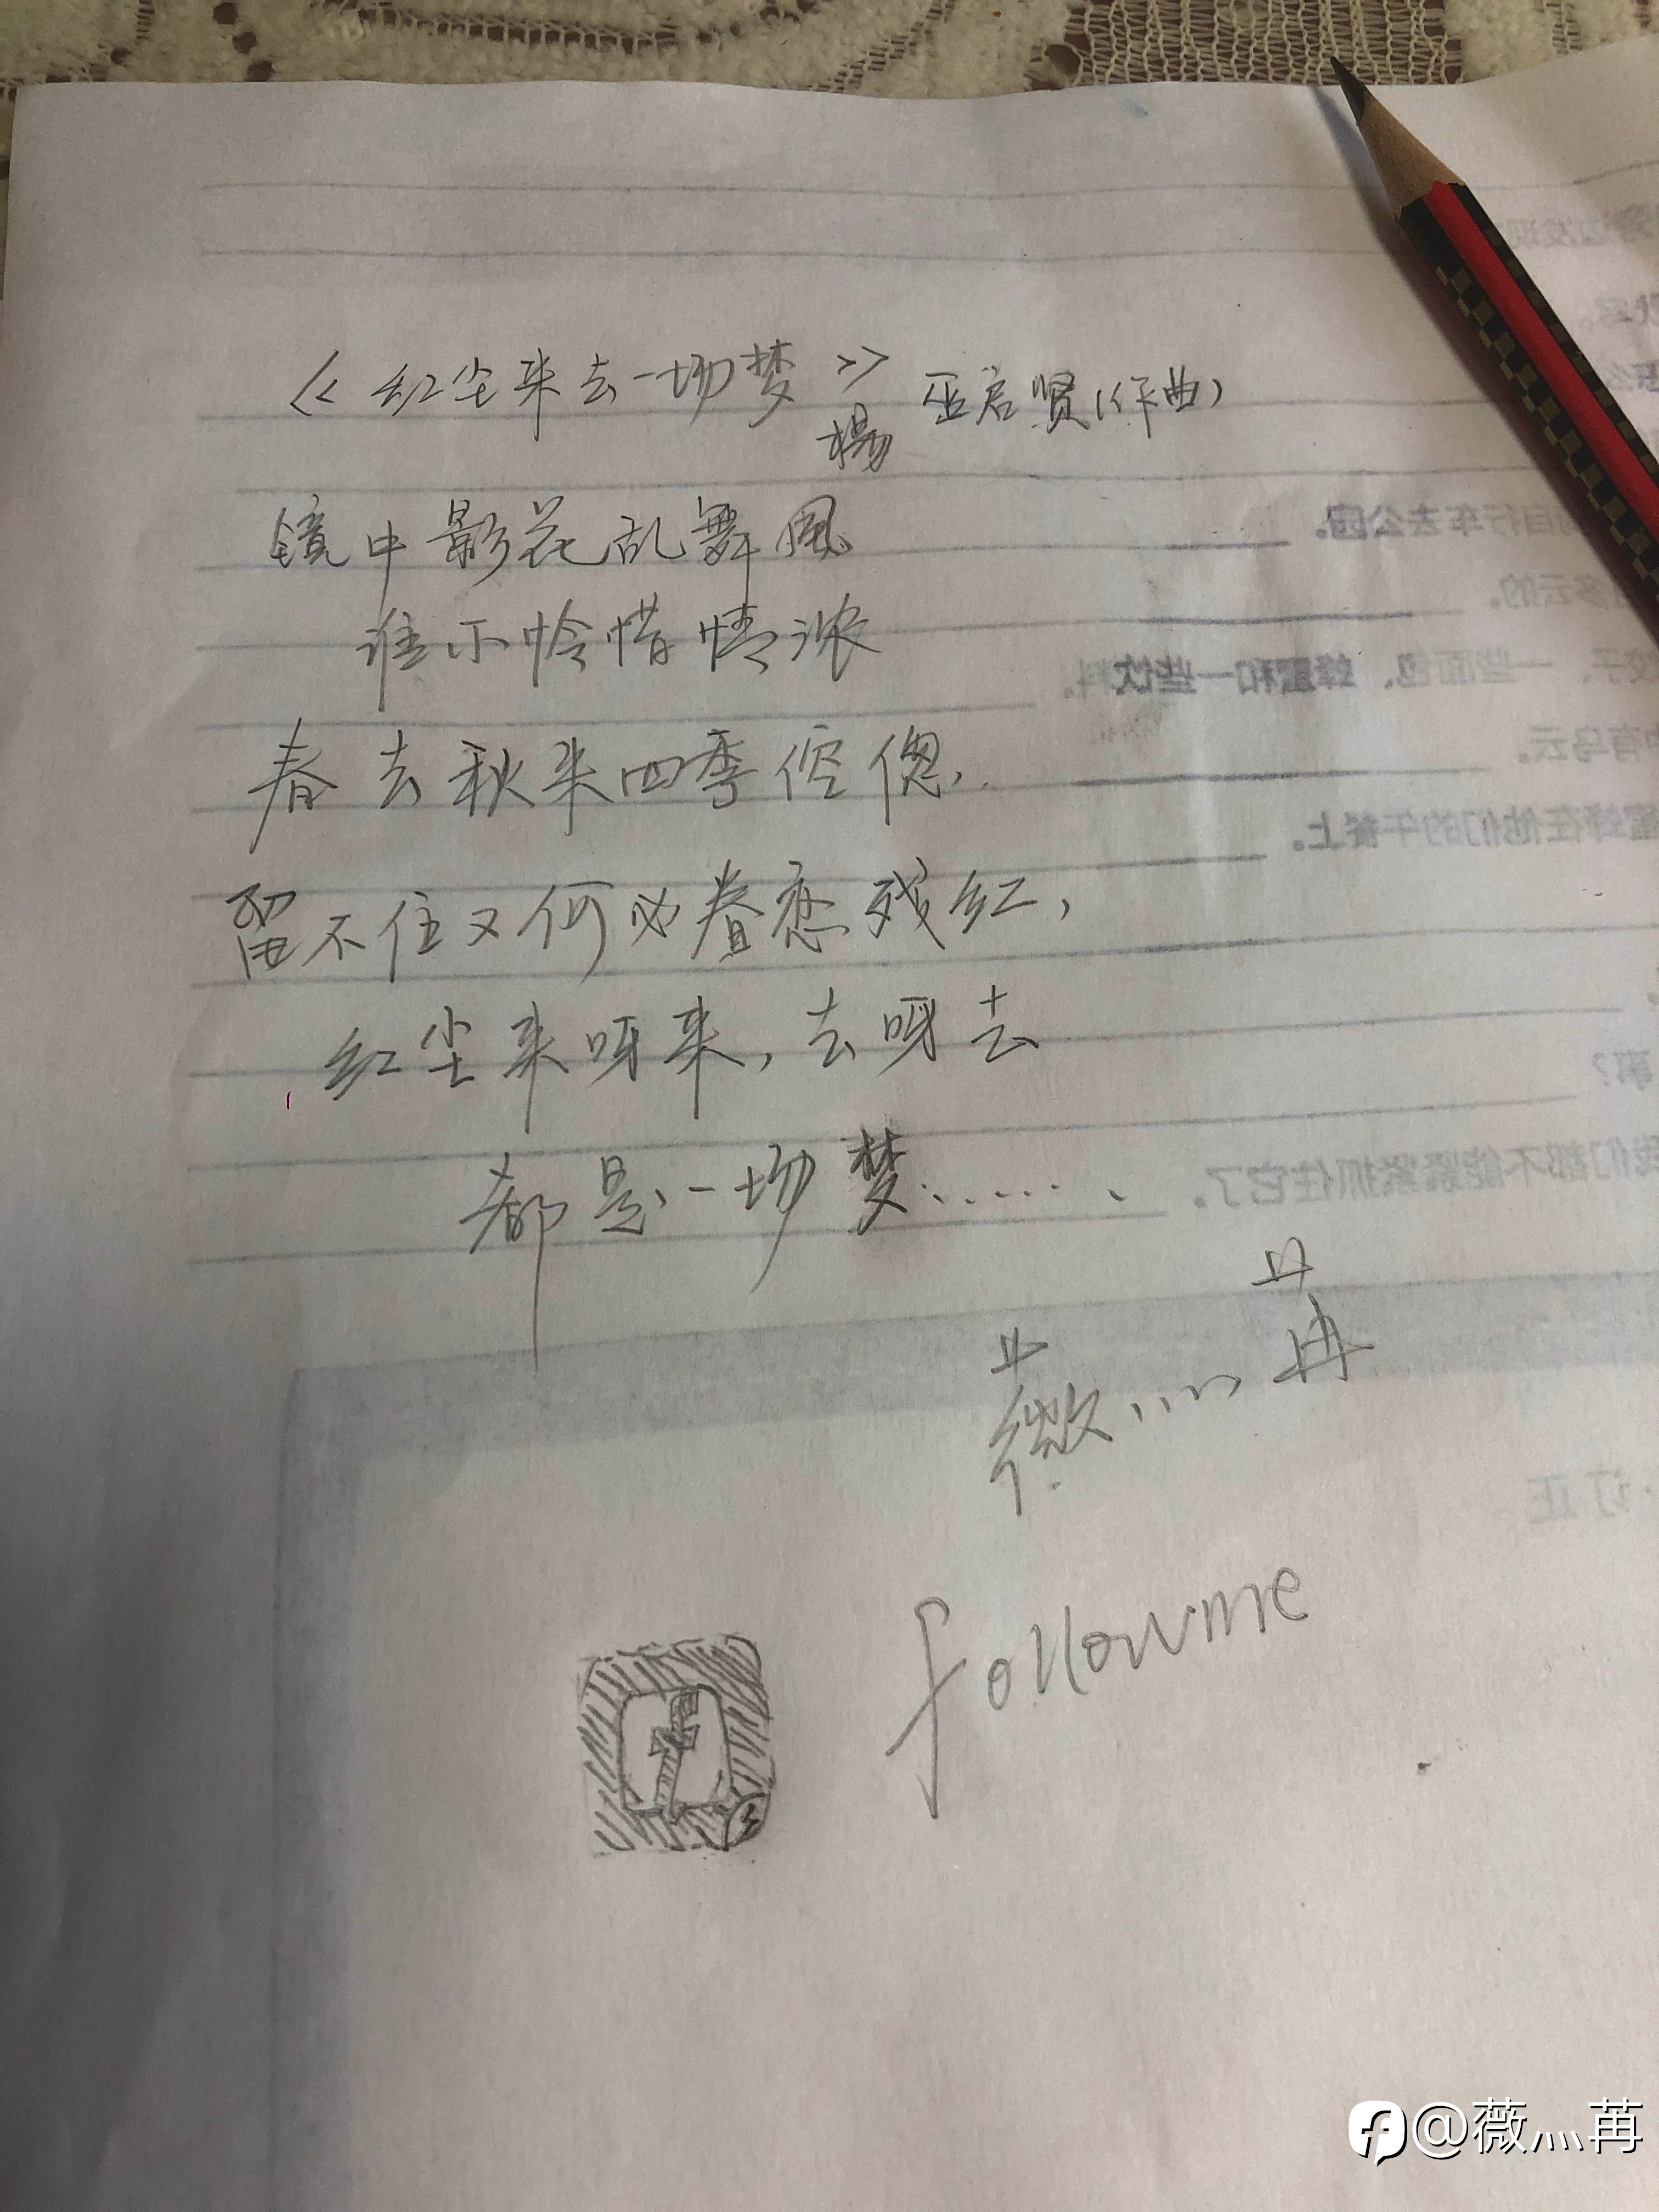 《红尘来去一场梦》 巫启贤(作曲)
杨
镜中影花乱舞风
谁不怜惜情浓
春去秋来四季倥偬.
留不住又何必眷恋残红,
红尘来呀来,去呀去
都是一场梦......、
薇灬苒
follow me
自行车去公园。
多云的。
饺子、一些面包、蜂蜜和一些饮料。
有乌云。
蜜蜂在他们的午餐上。
事?
我们都不能紧紧抓住它了。
·订正
@薇灬苒